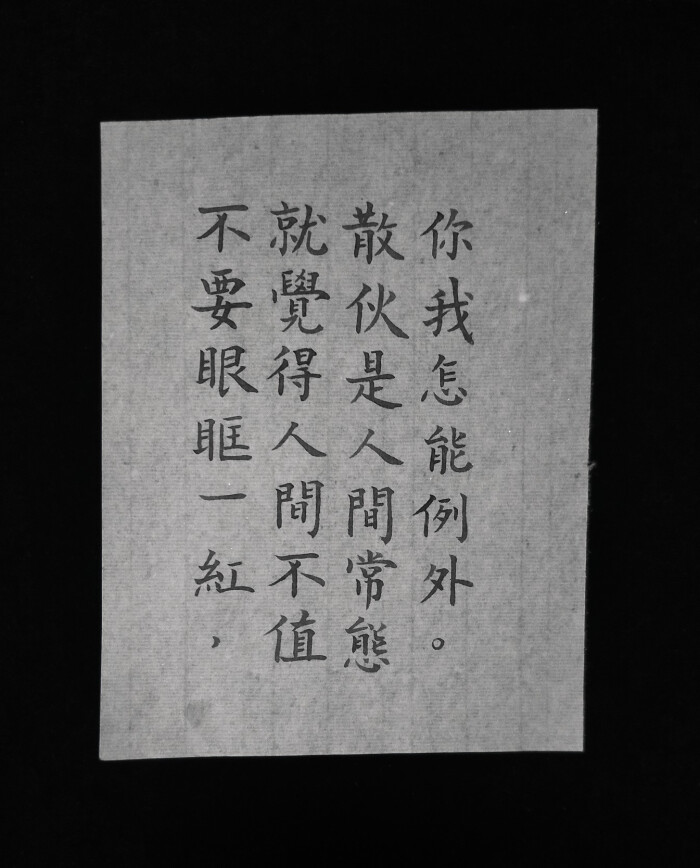 不要眼眶一紅，
就覺得人間不值
散伙是人間常態
你我怎能例外。